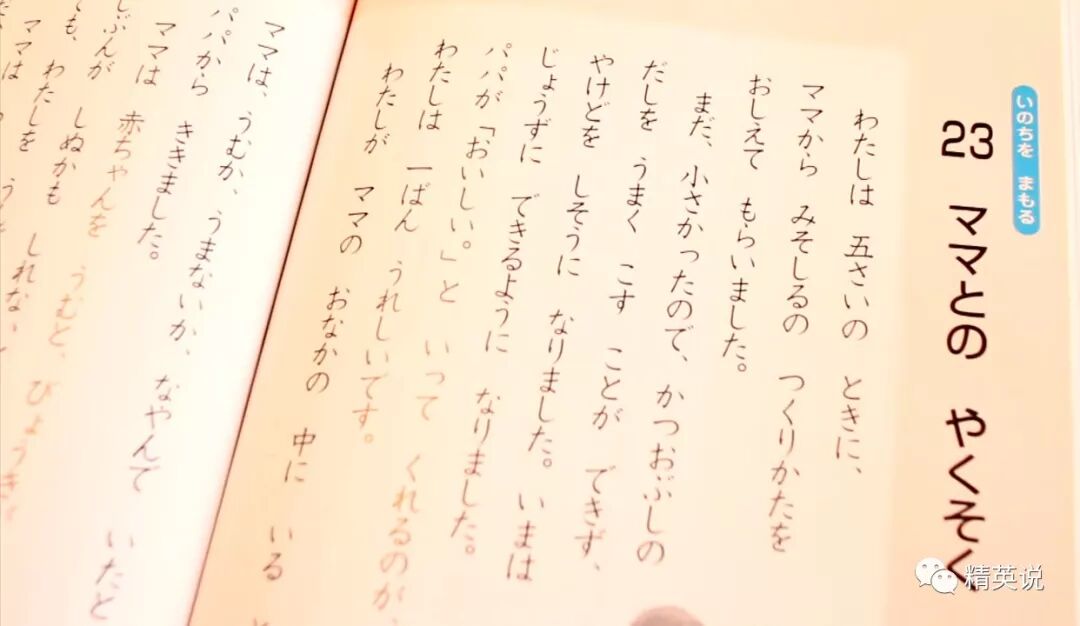 いのちを まもる
23 ママとの やくそく
わたしは 五さいの ときに、
ママから みそしるの つくりかたを
おしえて もらいました。
まだ、小さかったので、かつおぶしの
だしを うまく こす ことが できず、
やけどを しそうに なりました。いまは
じょうずに できるように なりました。
パパが「おいしい。」と いって くれるのが、
わたしは 一ばん うれしいです。
わたしが ママの おなかの 中に いる
ママは、うむか、うまないか、なやんで いたと
パパから ききました。
ママは 赤ちゃんを うむと、びょうき
しぬかも しれない
わたしを
ママは
精英说